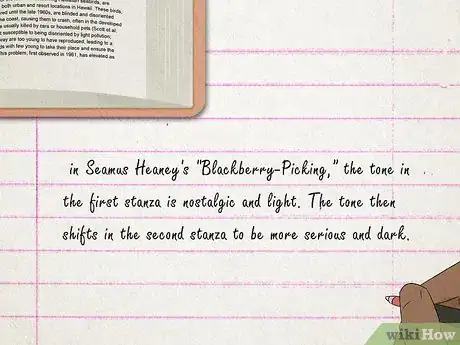 both urban and resort locations in Hawaii. These birds,
ered until the late 1960s, are blinded and disoriented
the coast, causing them to crash, often in the developed
usually killed by cars or household pets (Scott et al.
susceptible to being disoriented by light pollution;
way are too young to have reproduced, leading to a
ds with few young to take their place and ensure the
his problem, first observed in 1961, has elevated as
in Seamus Heaney's "Blackberry-Picking," the tone in
the first stanza is nostalgic and light. The tone then
shifts in the second stanza to be more serious and dark.
wikiHow